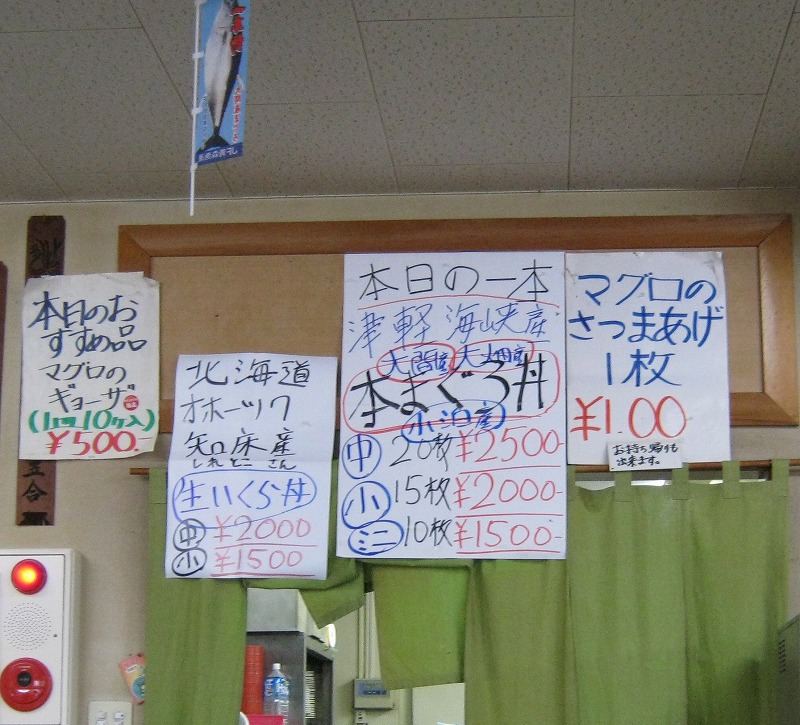 本日のお
すすめ品
マグロの
ギョーザ
(1皿10ヶ入)
¥500-
北海道
オホーツク
知床産
しれとこ さん
生いくら丼
中 ¥2000
小 ¥1500
本日の一本
津軽海峡産
大間産
本まぐろ丼
小泊産
中 20枚 ¥2500-
小 15枚 ¥2000-
ミニ 10枚 ¥1500-
マグロの
さつまあげ
1枚
¥100
お持ち帰りも
出来ます。